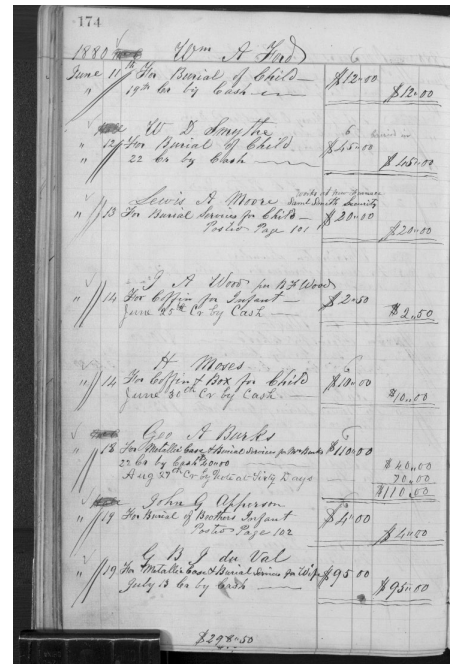 174
1880 Wm A Ford 6
June 11th For Burial of Child — $12.00
" 19th Cr by Cash — $12.00
W D Smythe 6
" 12 For Burial of Child $45.00
22 Cr by Cash — $45.00
Lewis A Moore Works at
" 13 For Burial Services for Child — $20.00
Posted Page 101 $20.00
J A Wood per B F Wood
" 14 For Coffin for Infant — $2.50
June 25th Cr by Cash — $2.50
H Moses 6
" 14 For Coffin & Box for Child $10.00
June 30th Cr by Cash — $10.00
Geo A Burks 6
18 For Metallic Case & Burial Services for Mr Burks $110.00
22 Cr by Cash $40.00 $40.00
Aug 27th Cr by Note at Sixty Days — 70.00
$110.00
John G Apperson 6
" 19 For Burial of Brothers Infant $4.00
Posted Page 102 $4.00
G B J du Val 6
" 19 For Metallic Case & Burial Services for Wife $95.00
July 13 Cr by Cash — $95.00
$298.50